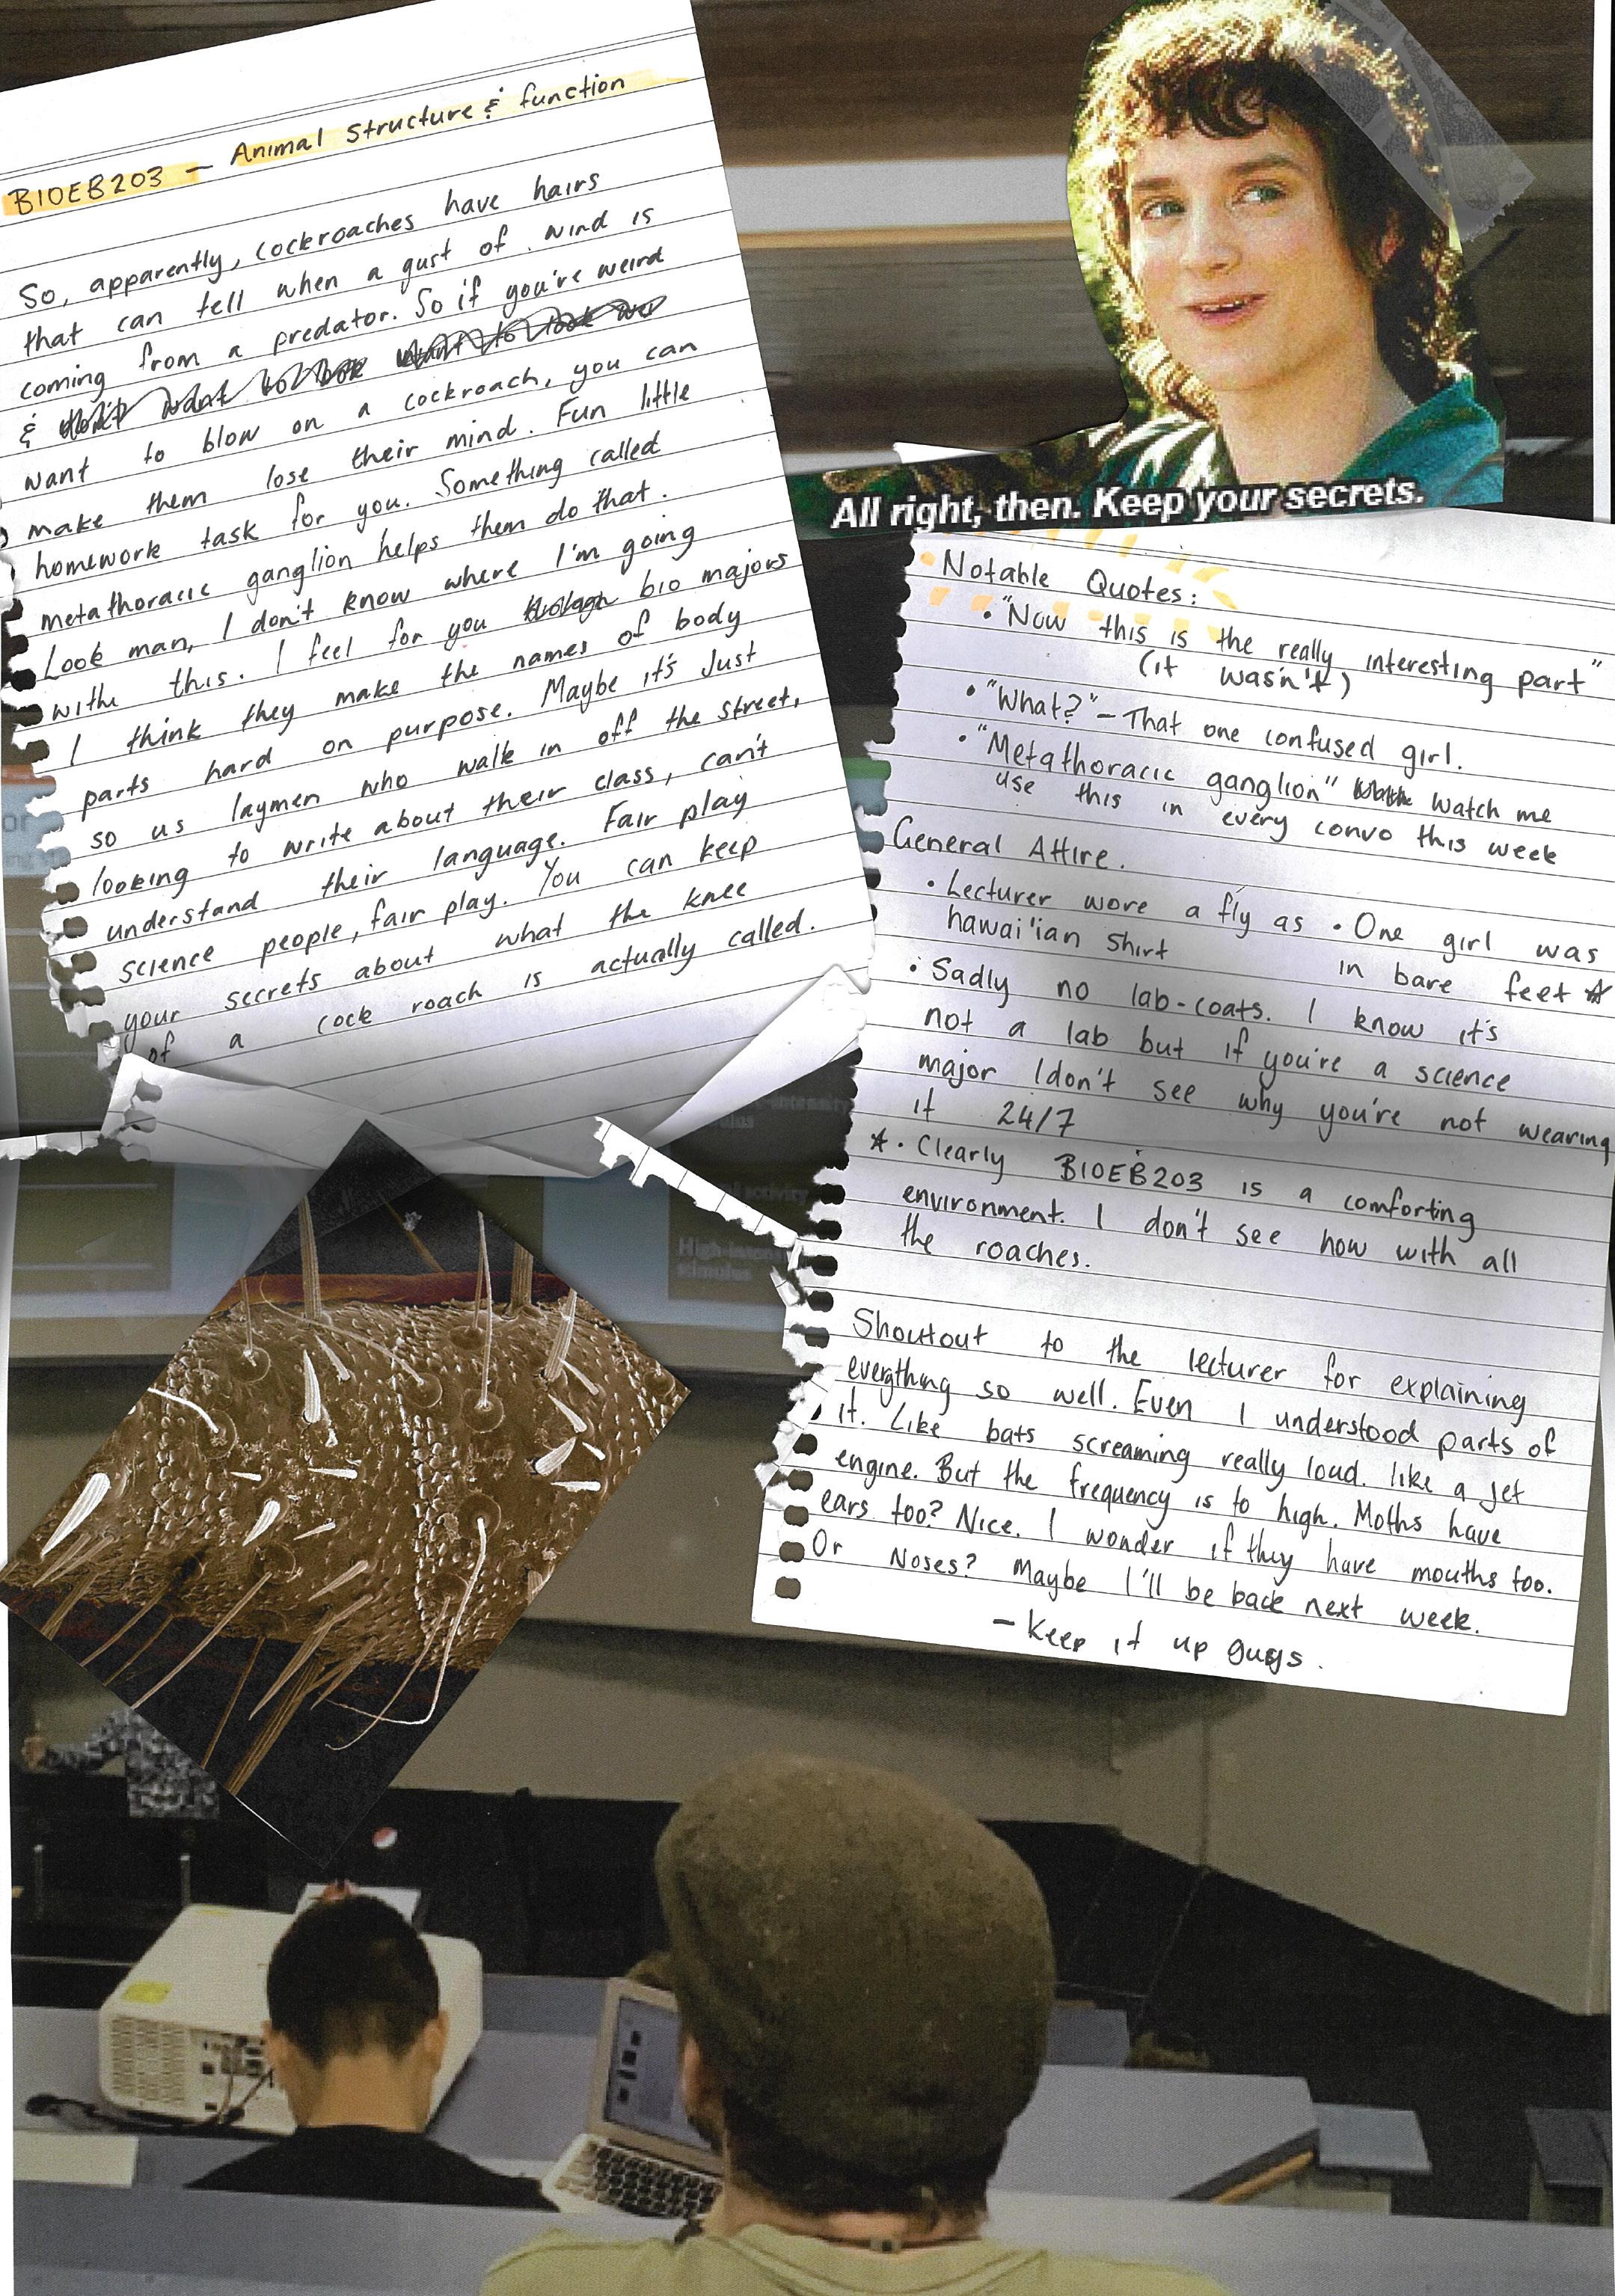 BIOEB203 - Animal Structure & function
So, apparently, cockroaches have hairs
that can tell when a gust of wind is
coming from a predator. So if you're weird
& don't want to look want to look
want to blow on a cockroach, you can
make them lose their mind. Fun little
homework task for you. Something called
metathoracic ganglion helps them do that.
Look man, I don't know where I'm going
withe this. I feel for you bio majors
I think they make the names of body
parts hard on purpose. Maybe it's Just
so us laymen who walk in off the street,
looking to write about their class, can't
understand their language. Fair play
science people, fair play. You can keep
your secrets about what the knee
of a cock roach is actually called.
All right, then. Keep your secrets.
Notable Quotes:
• "Now this is the really interesting part"
(it wasn't)
• "What?" - That one confused girl.
• "Metathoracic ganglion" Watch me
use this in every convo this week
General Attire.
• Lecturer wore a fly as
hawai'ian shirt
• One girl was
in bare feet ☆
• Sadly no lab-coats. I know it's
not a lab but if you're a science
major I don't see why you're not wearing
it 24/7
☆ • Clearly BIOEB203 is a comforting
environment. I don't see how with all
the roaches.
Shoutout to the lecturer for explaining
everything so well. Even I understood parts of
it. Like bats screaming really loud. like a jet
engine. But the frequency is to high. Moths have
ears too? Nice. I wonder if they have mouths too.
Or Noses? Maybe I'll be back next week.
- Keep it up guys.
High-intensity
stimulus